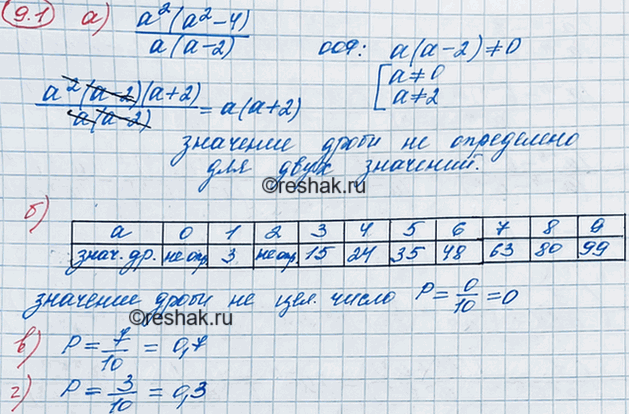 9.1 а) a²(a²-4) / a(a-2) ООФ: a(a-2)≠0
[a≠0
a≠2
a²(a-2)(a+2) / a(a-2) = a(a+2)
значение дроби не определено
для двух значений.
©reshak.ru
б)
a 0 1 2 3 4 5 6 7 8 9
знач. др. не опр. 3 не опр. 15 24 35 48 63 80 99
значение дроби не цел. число P = 0/10 = 0
©reshak.ru
в) P = 7/10 = 0,7
г) P = 3/10 = 0,3